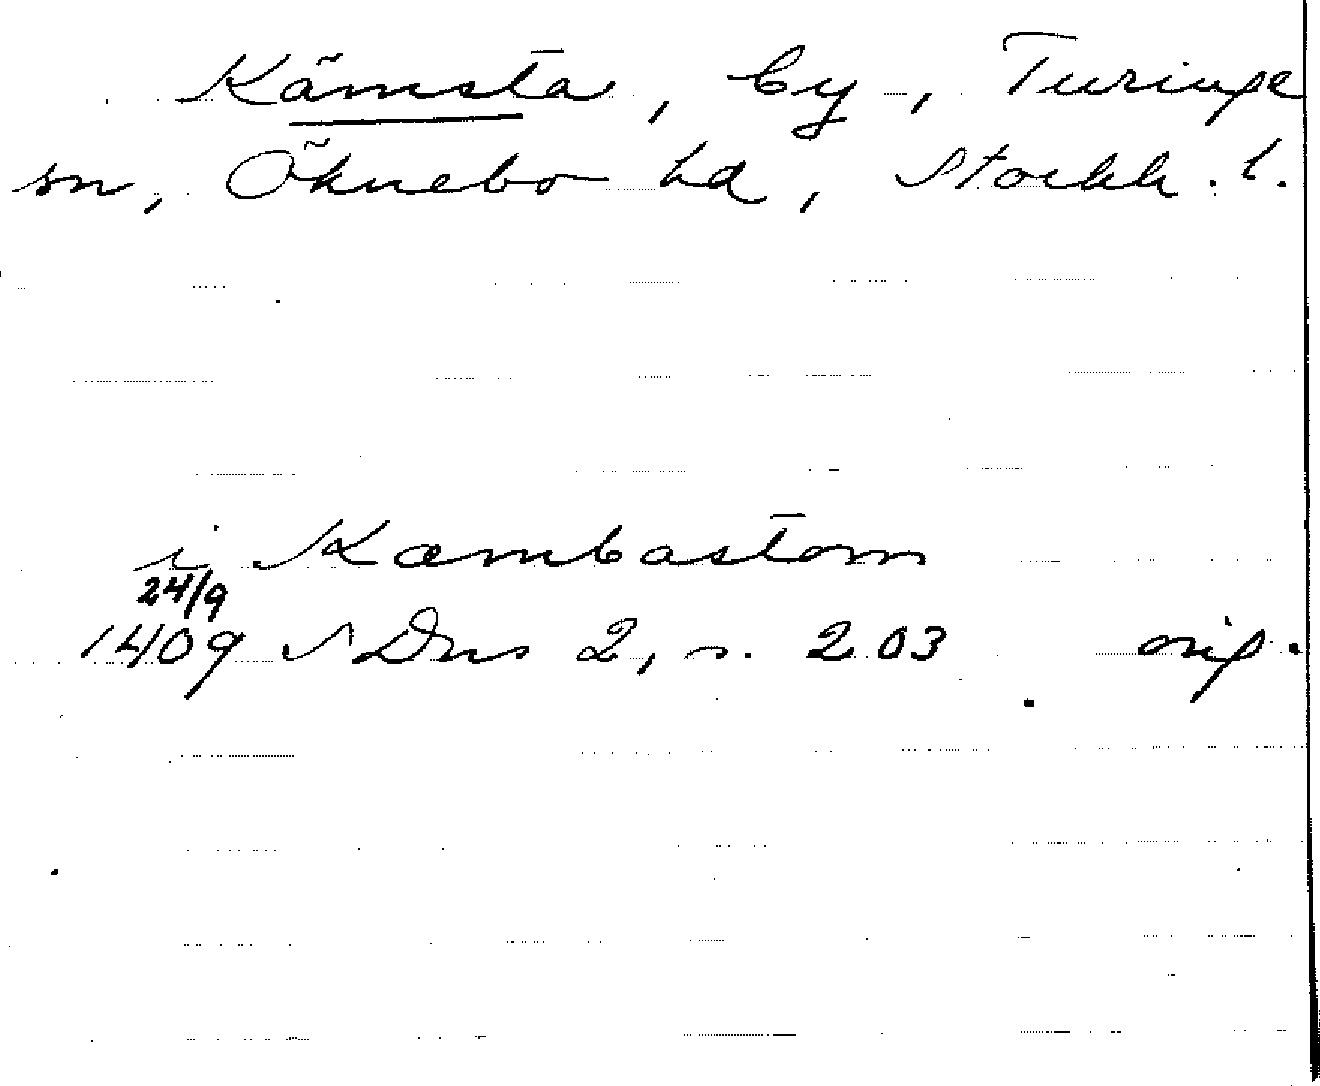 Kämsta, by, Turinge
sn, Öknebo hd, Stockh. l.
i Kæmbastom
24/9
1409 SDns 2, s. 203 orig.